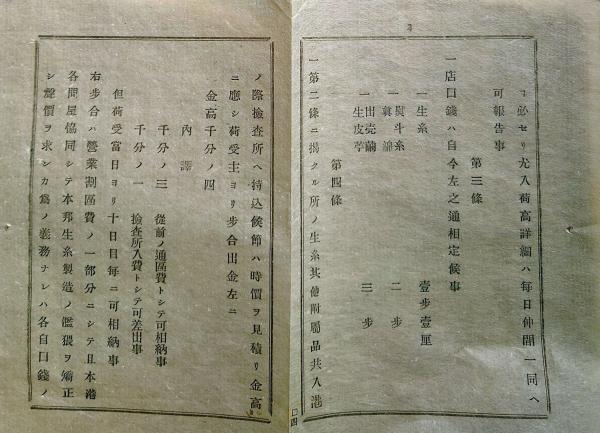 ヨ必セリ尤入荷高詳細ハ毎日仲間一同ヘ
可報告事
第三條
一店口錢ハ自今左之通相定候事
一生糸 壹步壹厘
一熨斗糸
一眞綿 二步
一出壳繭
一生皮苧 三步
第四條
一第二條ニ揚クル所ノ生糸其他附屬品共入港
ノ際撿査所ヘ持込候節ハ時價ヲ見積リ金高
ニ應シ荷受主ヨリ步合出金左ニ
金高千分ノ四
內譯
千分ノ三 從前ノ通區費トシテ可相納事
千分ノ一 撿査所入費トシテ可差出事
但荷受當日ヨリ十日目每ニ可相納事
右步合ハ營業割區費ノ一部分ニシテ且本港
各問屋協同シテ本邦生糸製造ノ濫猥ヲ矯正
シ聲價ヲ求シカ爲ノ義務ナレハ各自口錢ノ
四